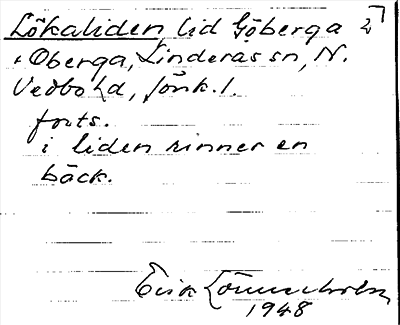 Lökaliden, lid Göberga 2
+ Oberga, Linderås sn, N.
Vedbo hd, Jönk. l.
forts.
i liden rinner en
bäck.
Erik
1948